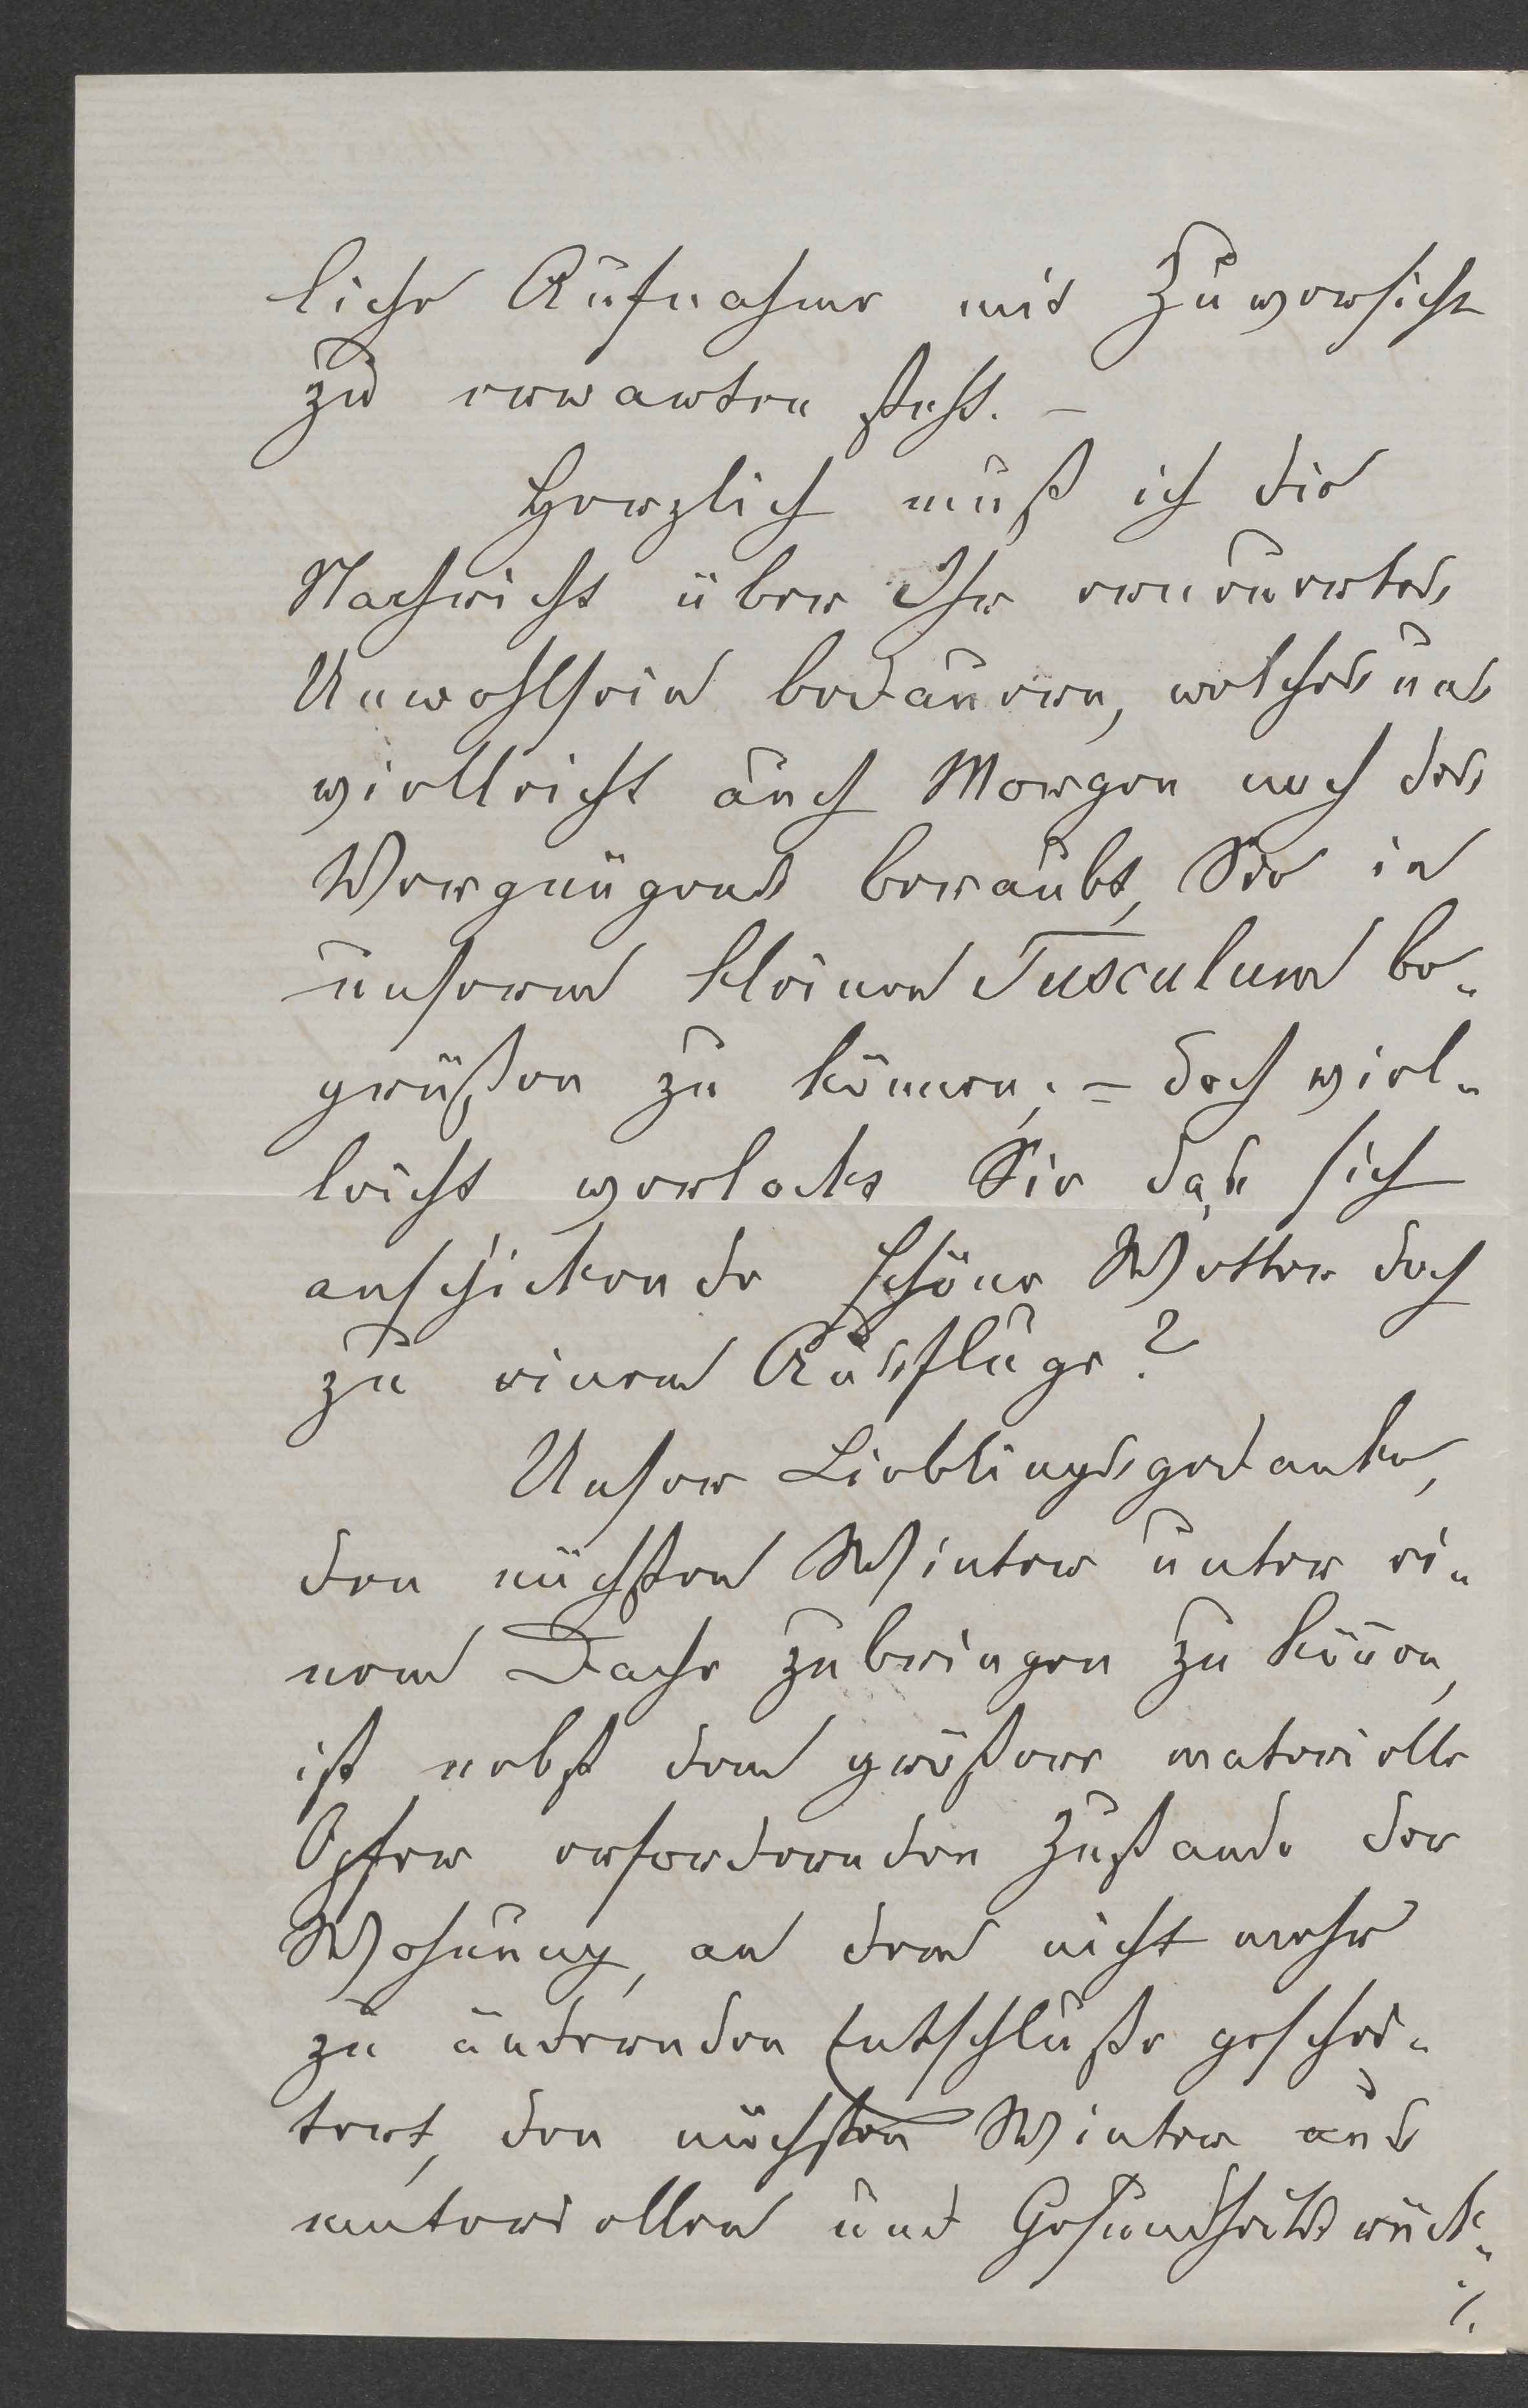 liche Aufnahme mit Zuversicht
zu erwarten steht. –
Herzlich muß ich die
Nachricht über Ihr erneuertes
Unwohlsein bedauern, welches uns
vielleicht auch Morgen noch des
Vergnügens beraubt, Sie in
unserem kleinen Tusculum be-
grüßen zu können; – doch viel-
leicht verlockt Sie das sich
anschickende schöne Wetter doch
zu einem Ausfluge?
Unser Lieblingsgedanke,
den nächsten Winter unter ei-
nem Dache zubringen zu kön̄en,
ist nebst dem größere materielle
Opfer erfordernden Zustande der
Wohnung, an dem nicht mehr
zu ändernden Entschluße geschei-
tert, den nächsten Winter aus
materiellen und Gesundheitsrück-
./.